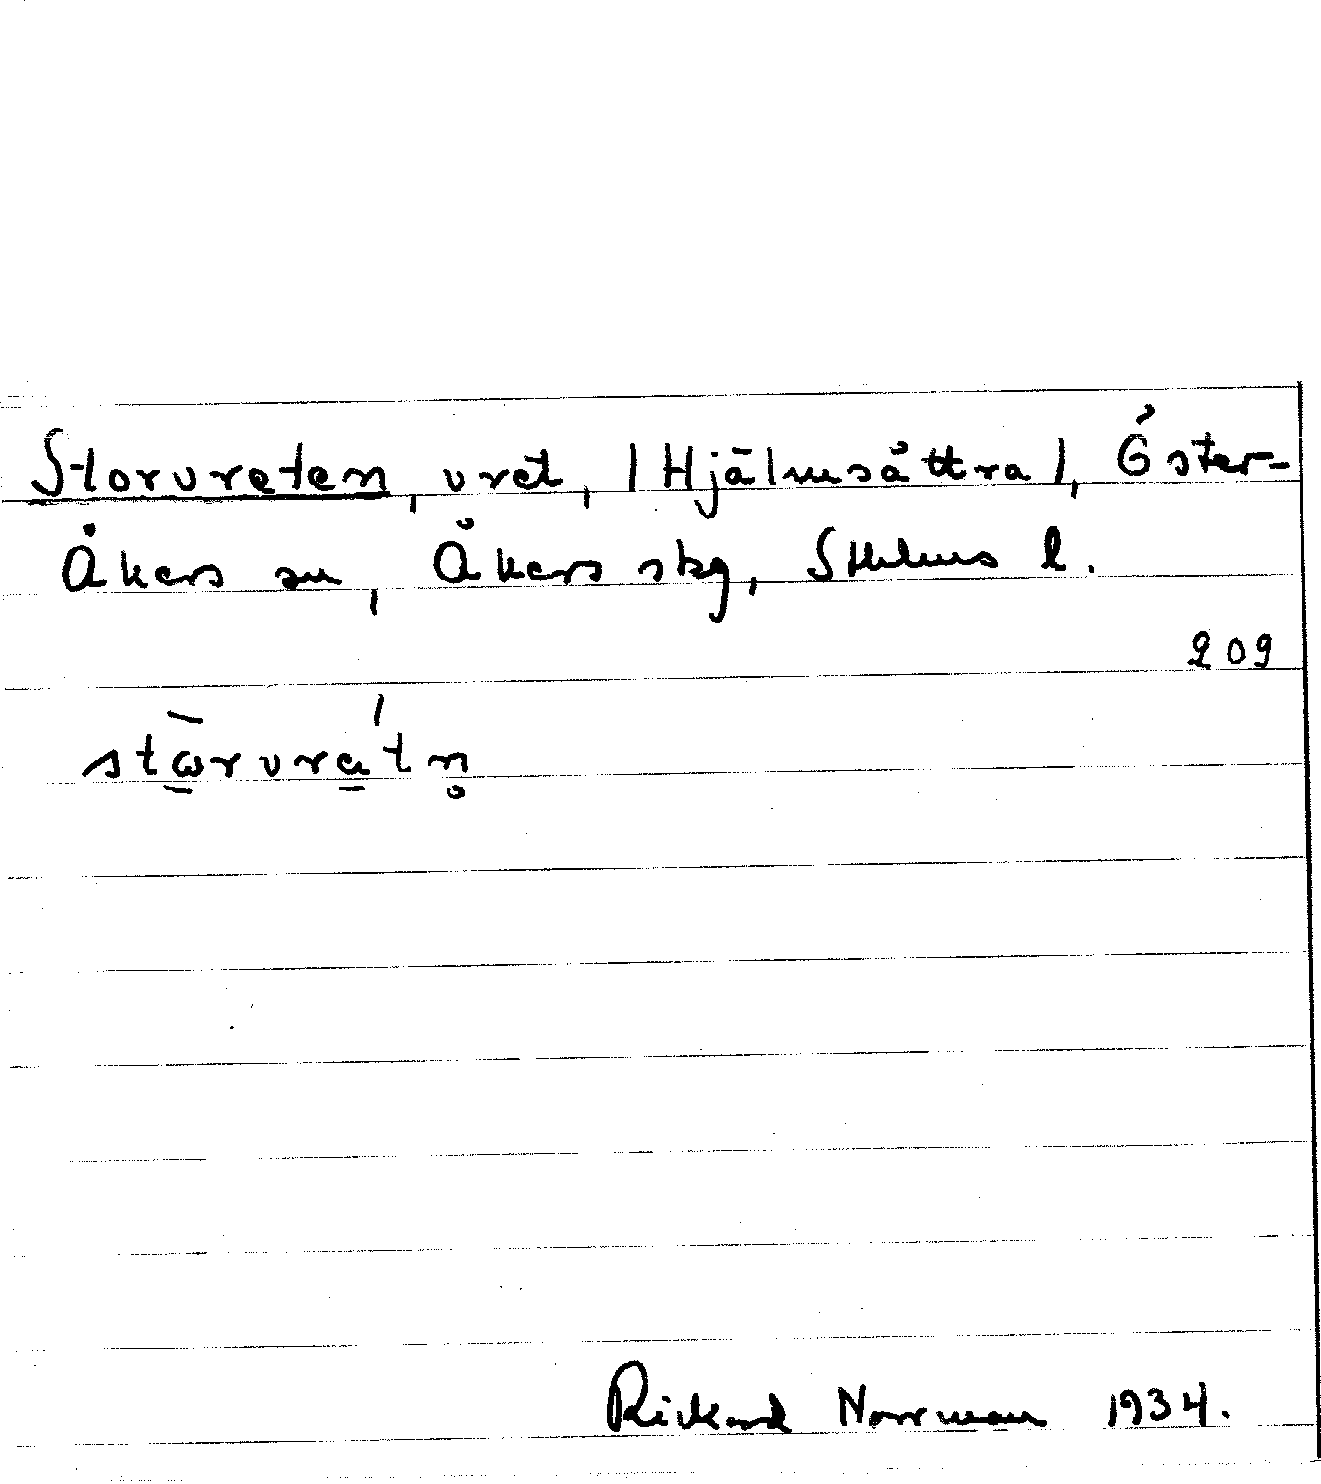 Storvreten, vret, /Hjälmsättra/, Öster-
Åkers sn, Åkers skg, Sthlms l.
209
stωrvratn̥
Rickard Norrman 1934.